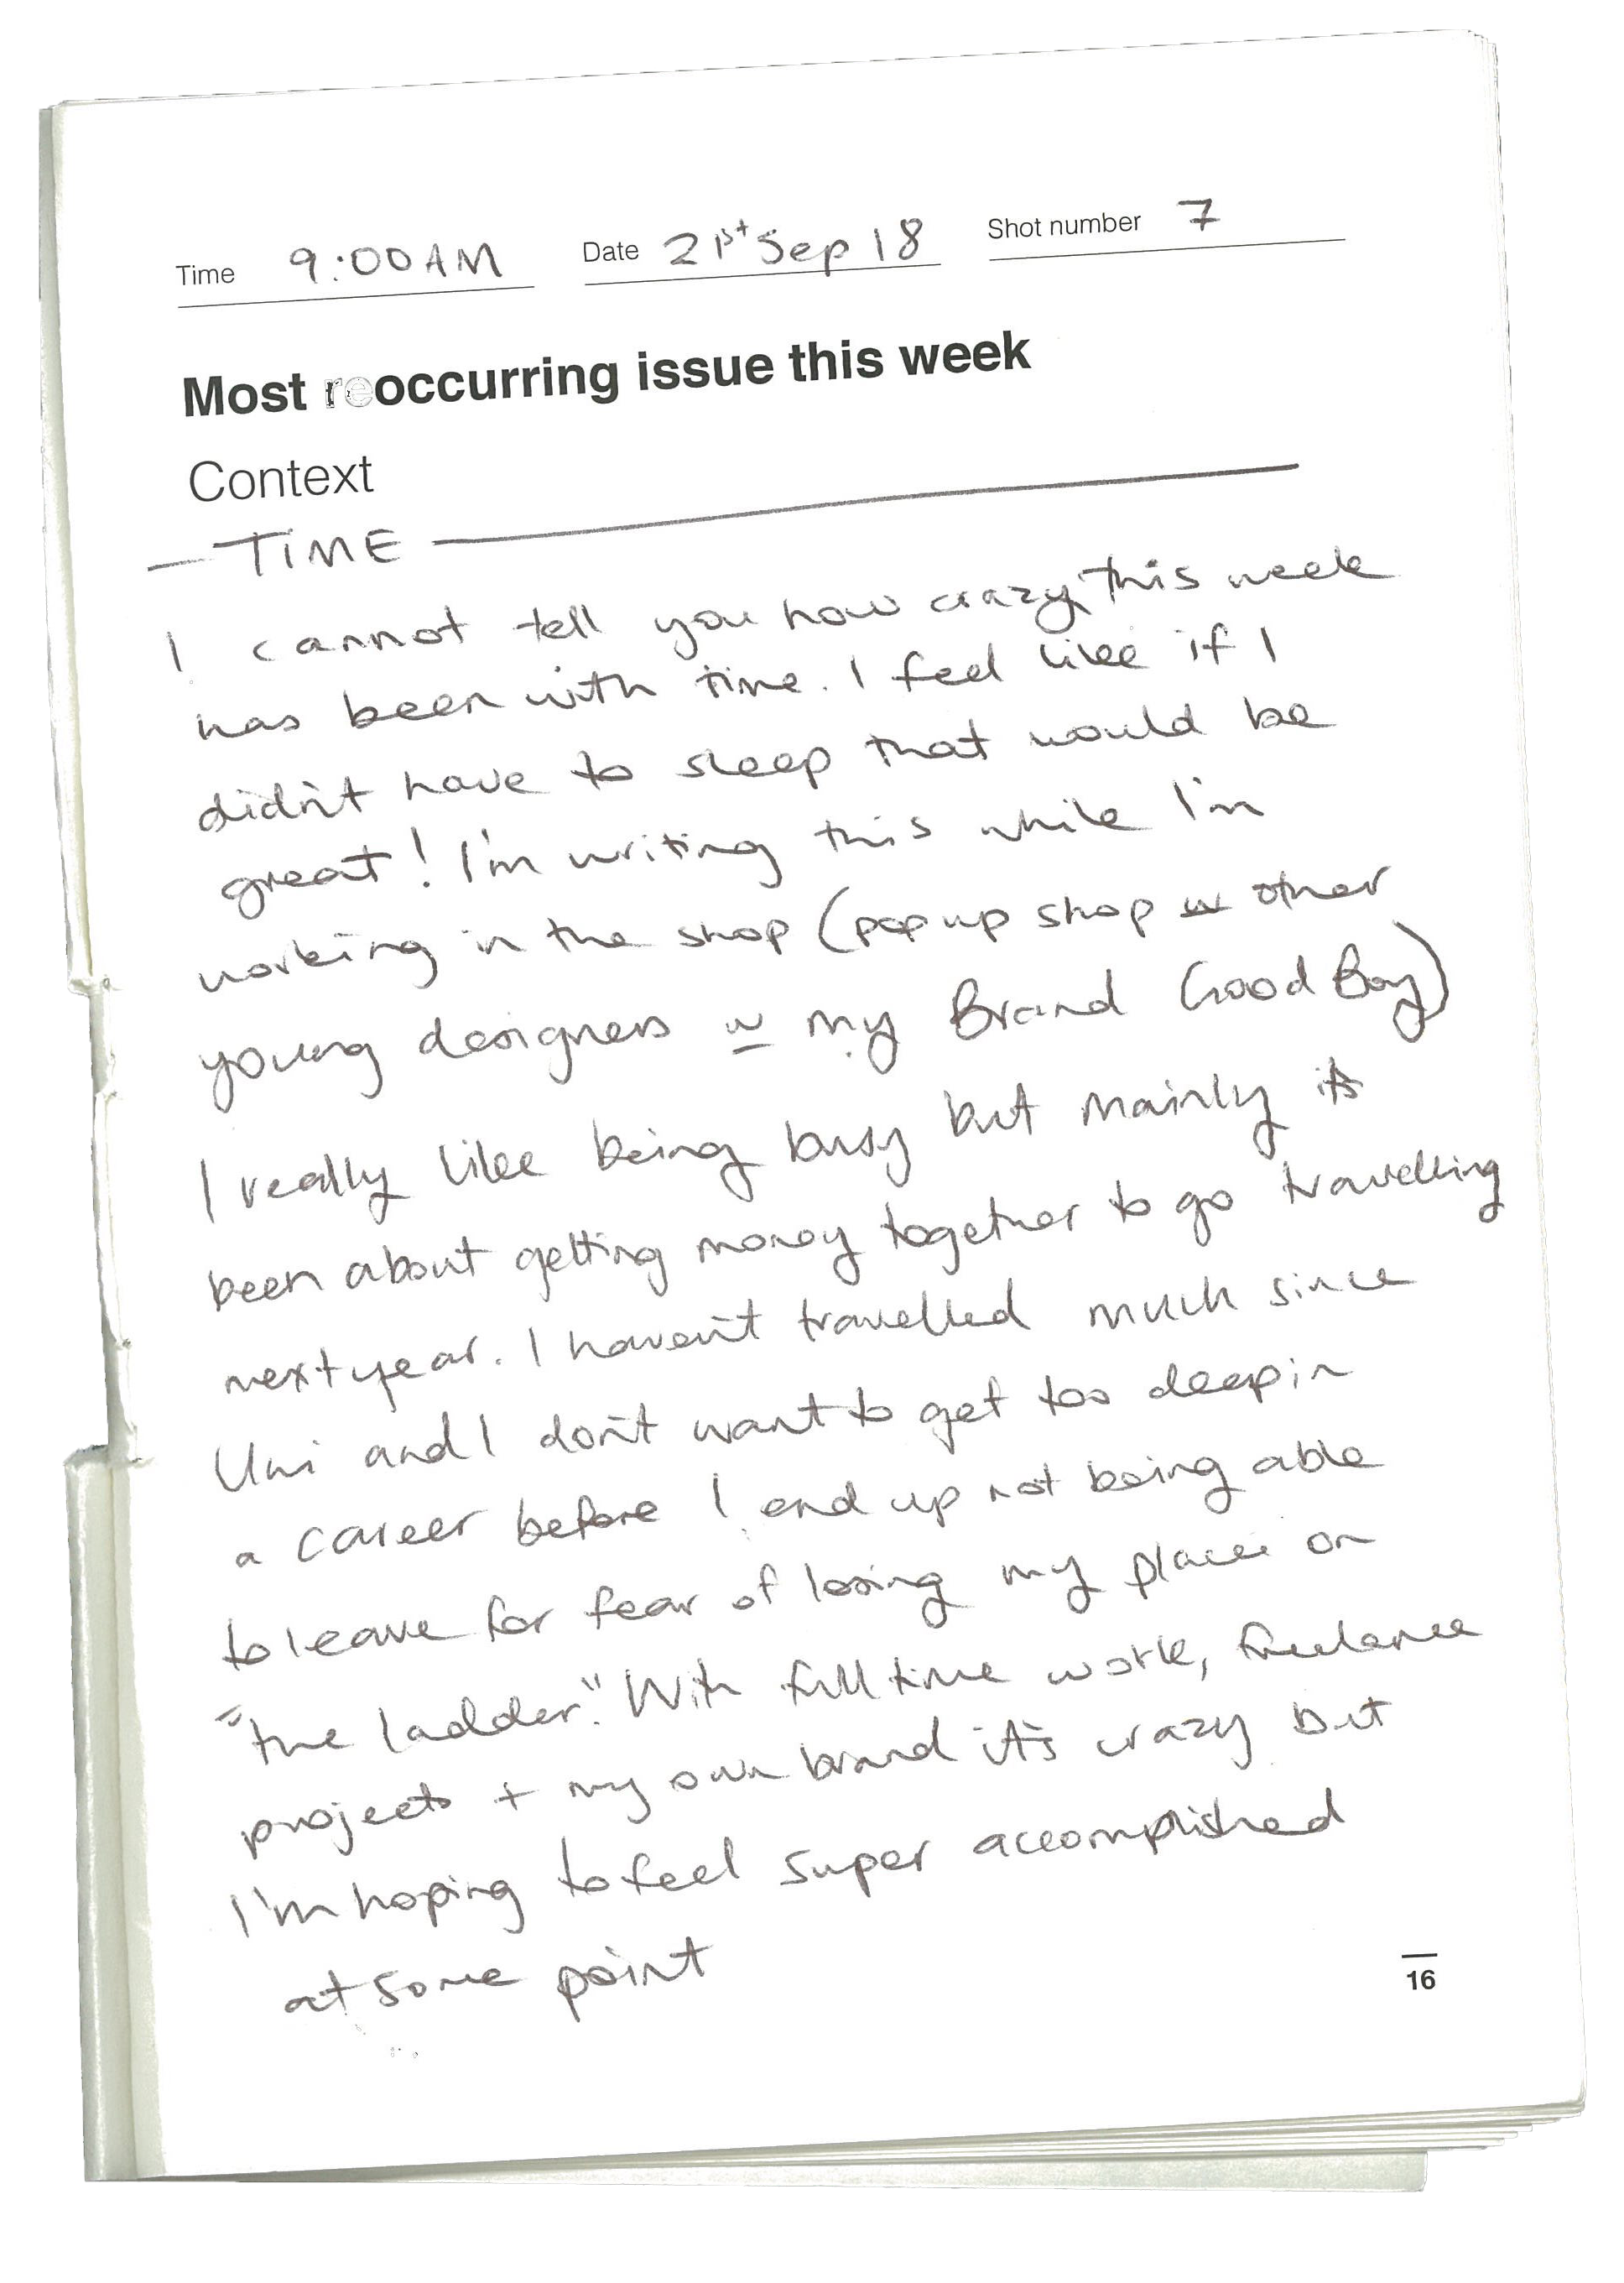 Time 9:00AM Date 21st Sep 18 Shot number 7
Most reoccurring issue this week
Context
TIME
I cannot tell you how crazy this week
has been with time. I feel like if I
didn't have to sleep that would be
great! I'm writing this while I'm
working in the shop (pop up shop w other
young designers w my Brand Good Boy)
I really like being busy but mainly its
been about getting money together to go travelling
next year. I haven't travelled much since
Uni and I don't want to get too deep in
a career before I end up not being able
to leave for fear of losing my place on
"the ladder." With full time work, freelance
projects + my own brand it's crazy but
I'm hoping to feel super accomplished
at some point
16